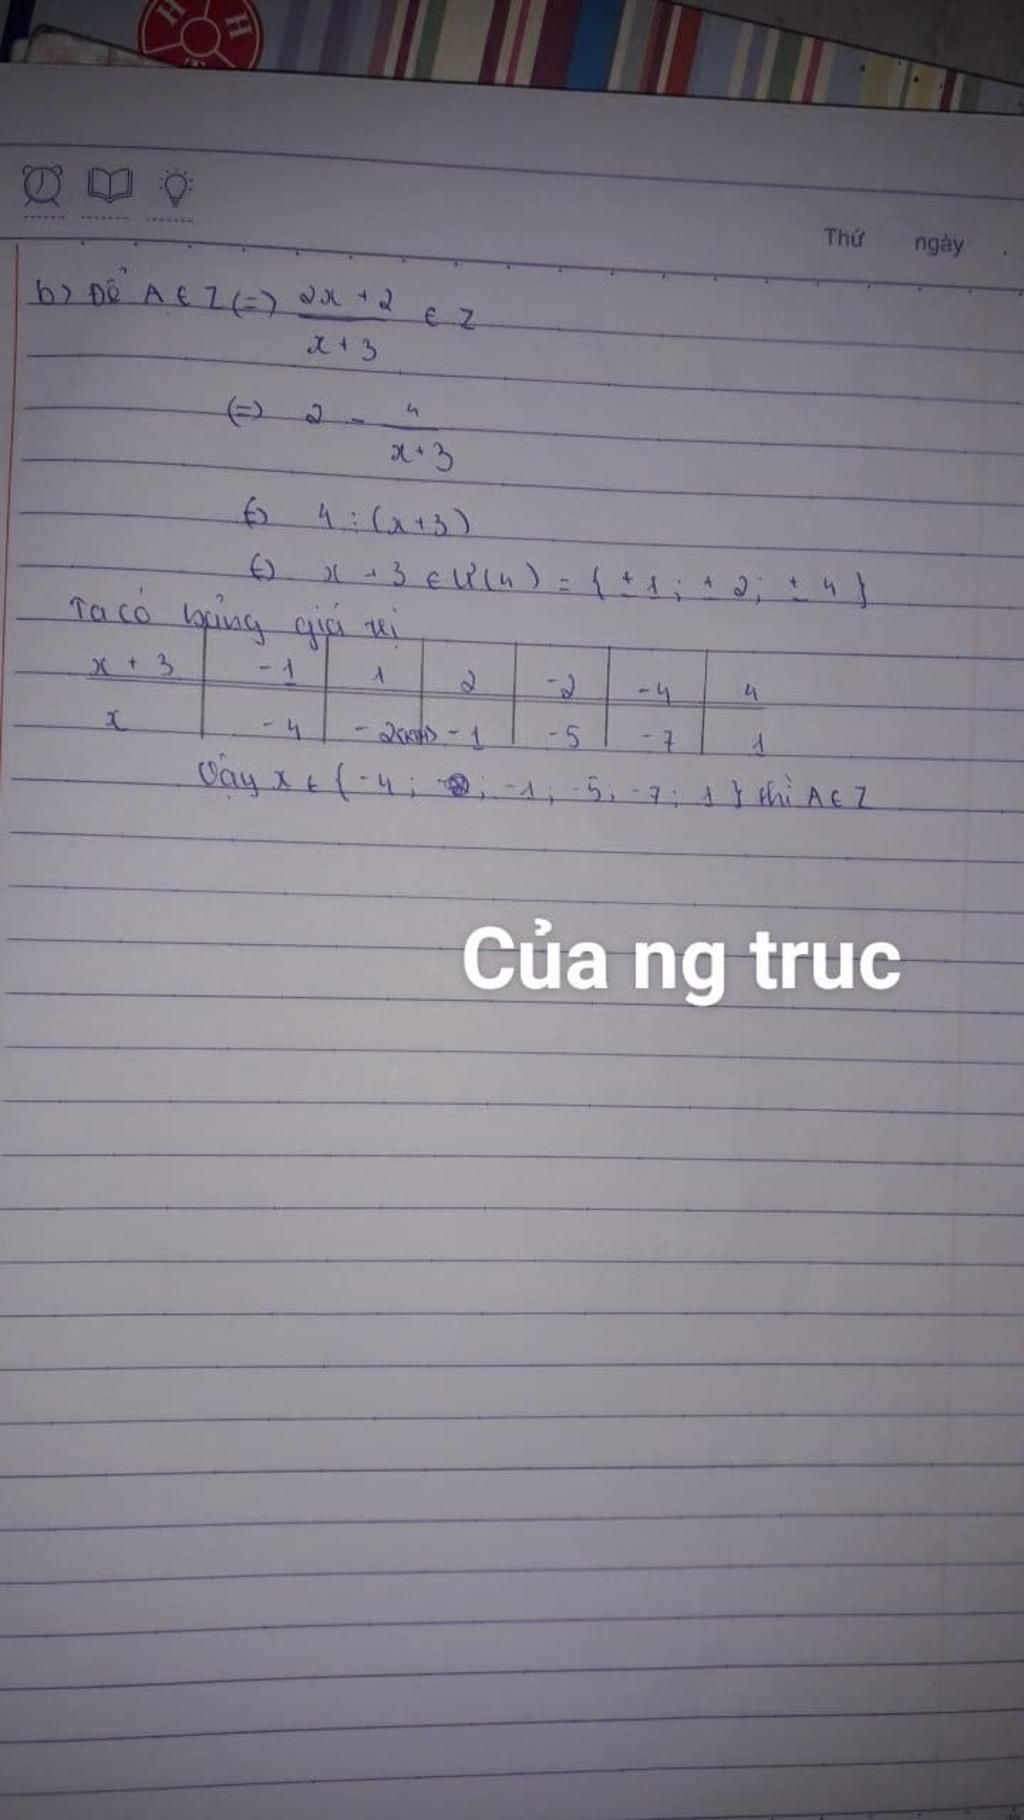 H H
Thứ ngày
b) Để A ∈ Z (=) 2x + 2 / x + 3 ∈ Z
(=) 2 - 4 / x + 3
(=) 4 : (x + 3)
(=) x + 3 ∈ Ư(4) = { ± 1 ; ± 2 ; ± 4 }
Ta có bảng giá trị
x + 3 | -1 | 1 | 2 | -2 | -4 | 4
x | -4 | -2 | -1 | -5 | -7 | 1
Vậy x ∈ { -4 ; ; -1 ; -5 ; -7 ; 1 } thì A ∈ Z
Của ng truc